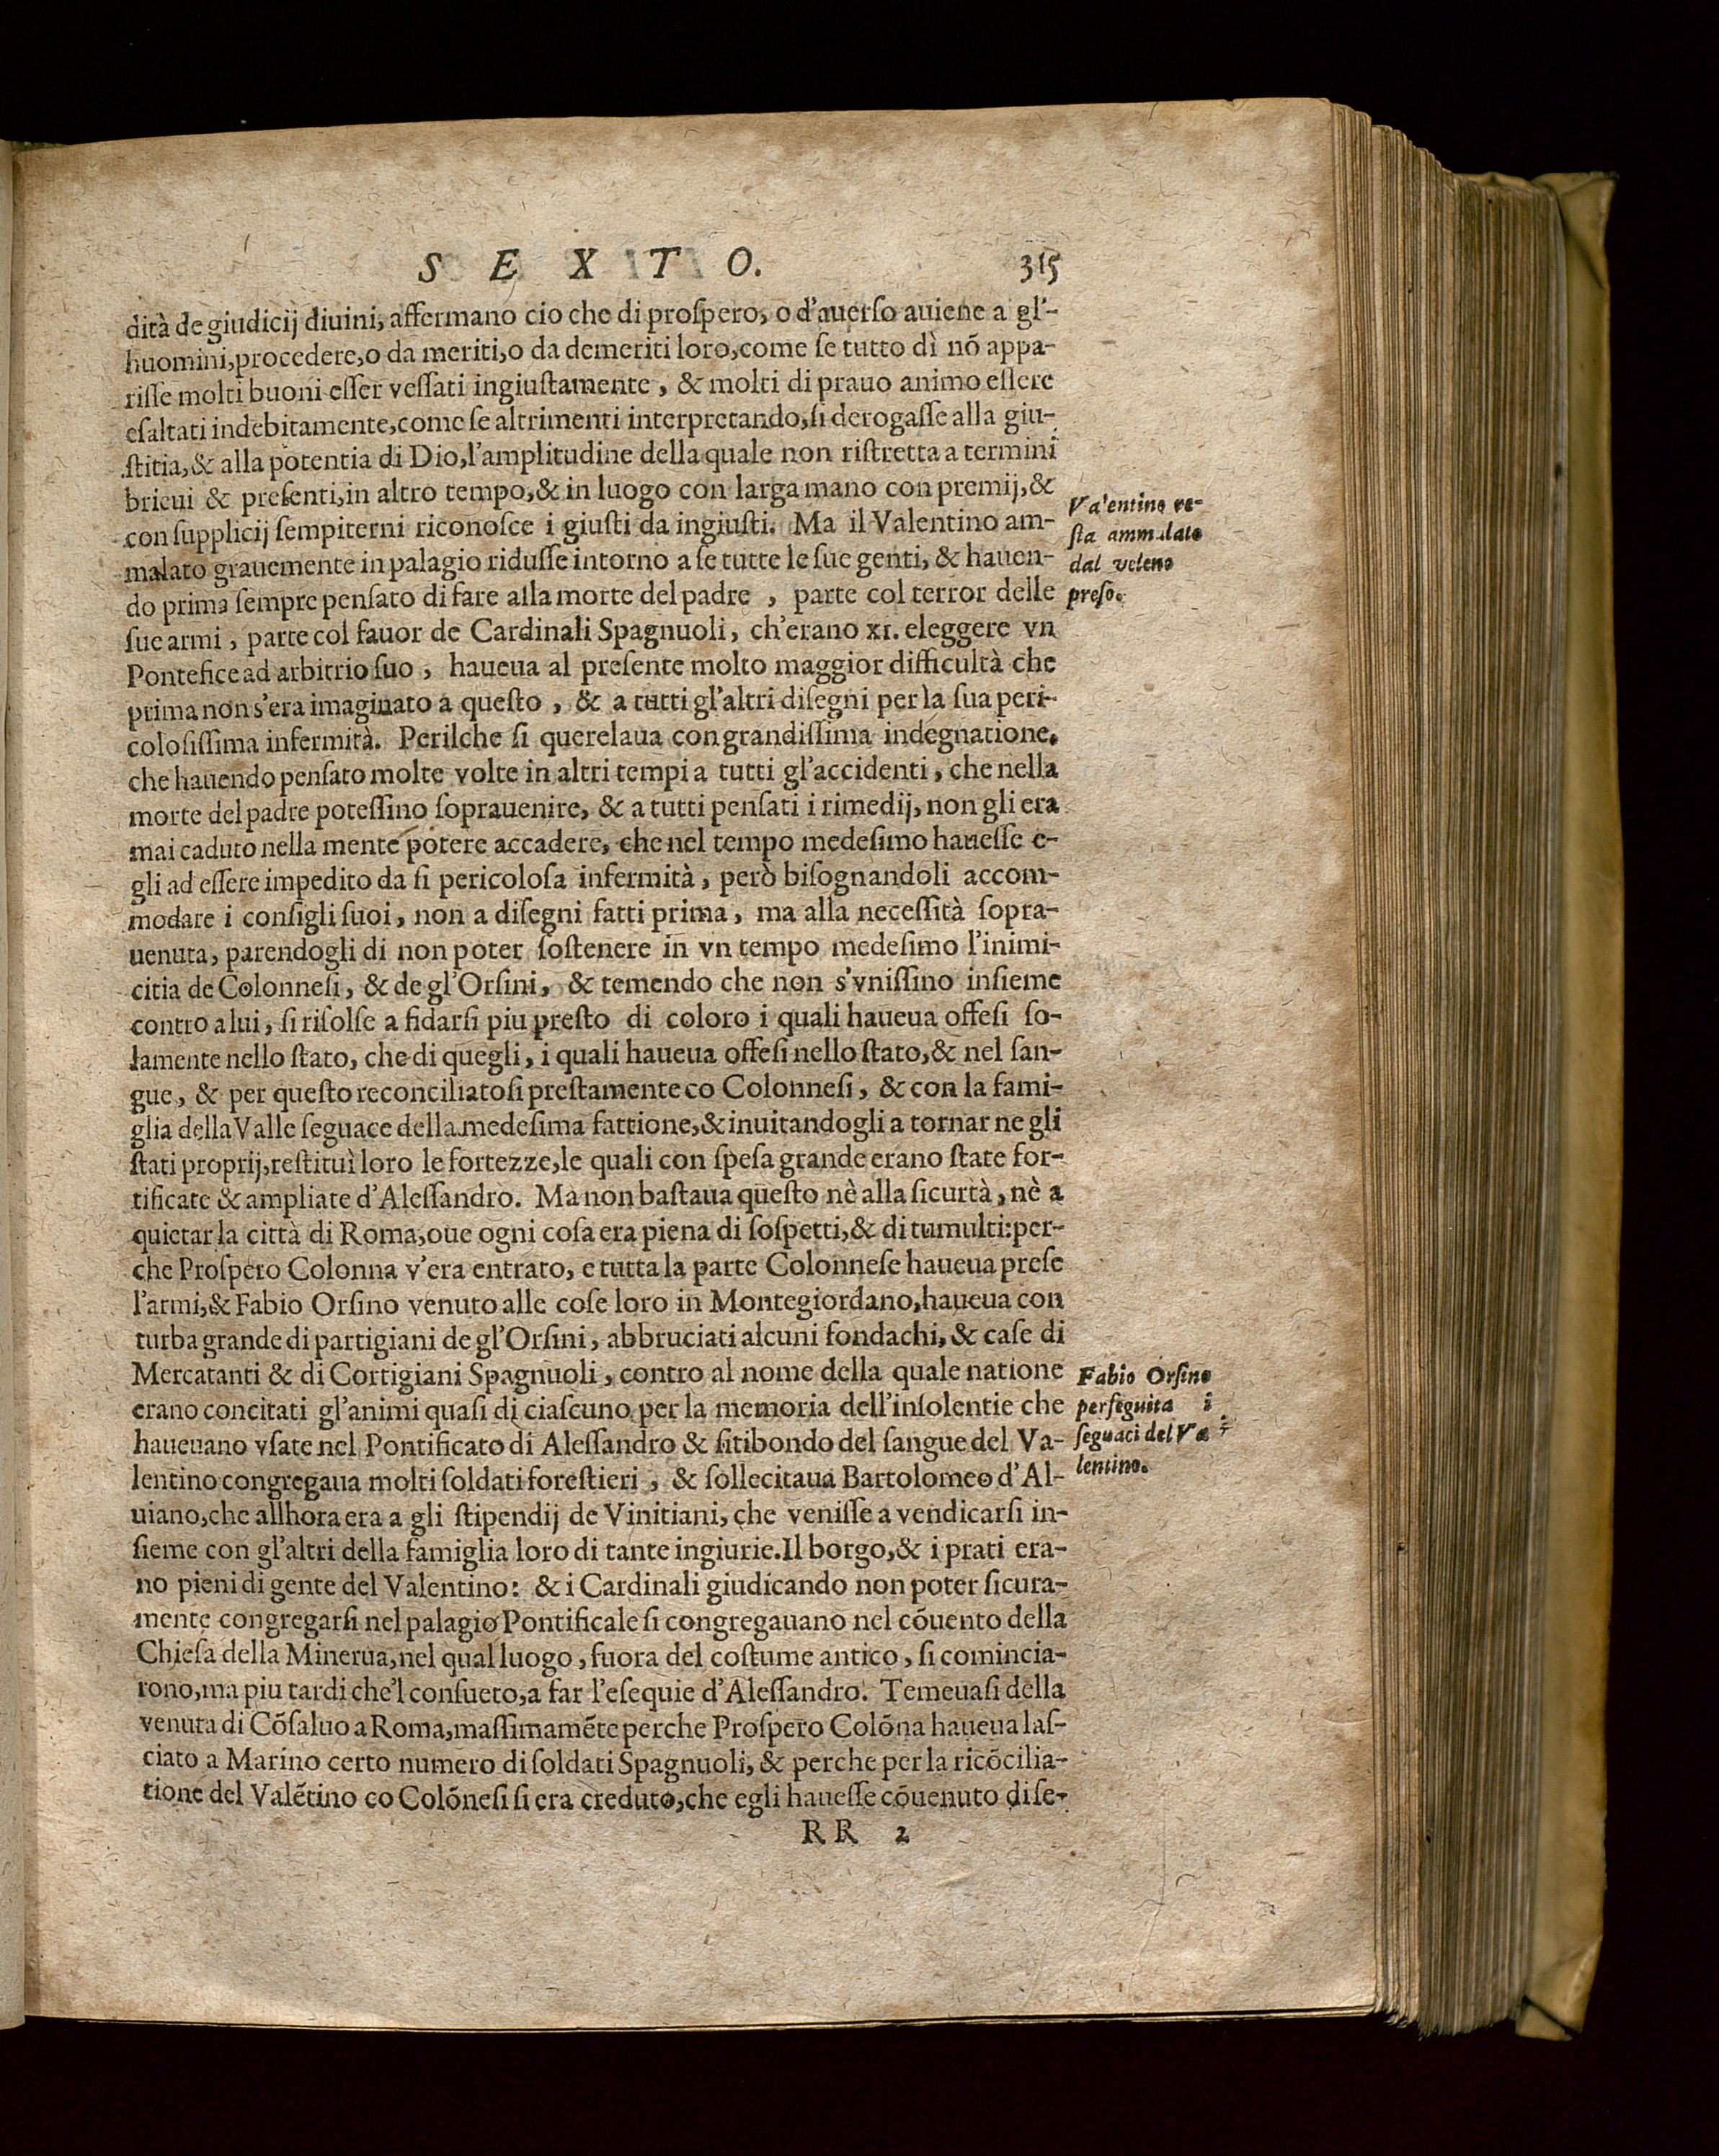 S E X T O. 315
dità de giudicij diuini, affermano cio che di prospero, o d'auerso auiene a gl'-
huomini, procedere, o da meriti, o da demeriti loro, come se tutto dì nõ appa-
risse molti buoni esser vessati ingiustamente, & molti di prauo animo essere
esaltati indebitamente, come se altrimenti interpretando, si derogasse alla giu-
stitia, & alla potentia di Dio, l'amplitudine della quale non ristretta a termini
brieui & presenti, in altro tempo, & in luogo con larga mano con premij, &
con supplicij sempiterni riconosce i giusti da ingiusti. Ma il Valentino am-
malato grauemente in palagio ridusse intorno a se tutte le sue genti, & hauen-
do prima sempre pensato di fare alla morte del padre, parte col terror delle
sue armi, parte col fauor de Cardinali Spagnuoli, ch'erano xi. eleggere vn
Pontefice ad arbitrio suo, haueua al presente molto maggior difficultà che
prima non s'era imaginato a questo, & a tutti gl'altri disegni per la sua peri-
colosissima infermità. Perilche si querelaua con grandissima indegnatione.
che hauendo pensato molte volte in altri tempi a tutti gl'accidenti, che nella
morte del padre potessino soprauenire, & a tutti pensati i rimedij, non gli era
mai caduto nella mente potere accadere, che nel tempo medesimo hauesse e-
gli ad essere impedito da si pericolosa infermità, però bisognandoli accom-
modare i consigli suoi, non a disegni fatti prima, ma alla necessità sopra-
uenuta, parendogli di non poter sostenere in vn tempo medesimo l'inimi-
citia de Colonnesi, & de gl'Orsini, & temendo che non s'vnissino insieme
contro a lui, si risolse a fidarsi piu presto di coloro i quali haueua offesi so-
lamente nello stato, che di quegli, i quali haueua offesi nello stato, & nel san-
gue, & per questo reconciliatosi prestamente co Colonnesi, & con la fami-
glia della Valle seguace della medesima fattione, & inuitandogli a tornar ne gli
stati proprij, restituì loro le fortezze, le quali con spesa grande erano state for-
tificate & ampliate d'Alessandro. Ma non bastaua questo nè alla sicurtà, nè a
quietar la città di Roma, oue ogni cosa era piena di sospetti, & di tumulti: per-
che Prospero Colonna v'era entrato, e tutta la parte Colonnese haueua prese
l'armi, & Fabio Orsino venuto alle cose loro in Montegiordano, haueua con
turba grande di partigiani de gl'Orsini, abbruciati alcuni fondachi, & case di
Mercatanti & di Cortigiani Spagnuoli, contro al nome della quale natione
erano concitati gl'animi quasi di ciascuno per la memoria dell'insolentie che
haueuano vsate nel Pontificato di Alessandro & sitibondo del sangue del Va-
lentino congregaua molti soldati forestieri, & sollecitaua Bartolomeo d'Al-
uiano, che allhora era a gli stipendij de Vinitiani, che venisse a vendicarsi in-
sieme con gl'altri della famiglia loro di tante ingiurie. Il borgo, & i prati era-
no pieni di gente del Valentino: & i Cardinali giudicando non poter sicura-
mente congregarsi nel palagio Pontificale si congregauano nel cõuento della
Chiesa della Minerua, nel qual luogo, fuora del costume antico, si comincia-
rono, ma piu tardi che'l consueto, a far l'esequie d'Alessandro. Temeuasi della
venuta di Cõsaluo a Roma, massimamẽte perche Prospero Colõna haueua las-
ciato a Marino certo numero di soldati Spagnuoli, & perche per la ricõcilia-
tione del Valẽtino co Colõnesi si era creduto, che egli hauesse cõuenuto di se-
RR 2
Valentino re-
sta ammalato
dal veleno
preso.
Fabio Orsino
perseguita i
seguaci del Va
lentino.